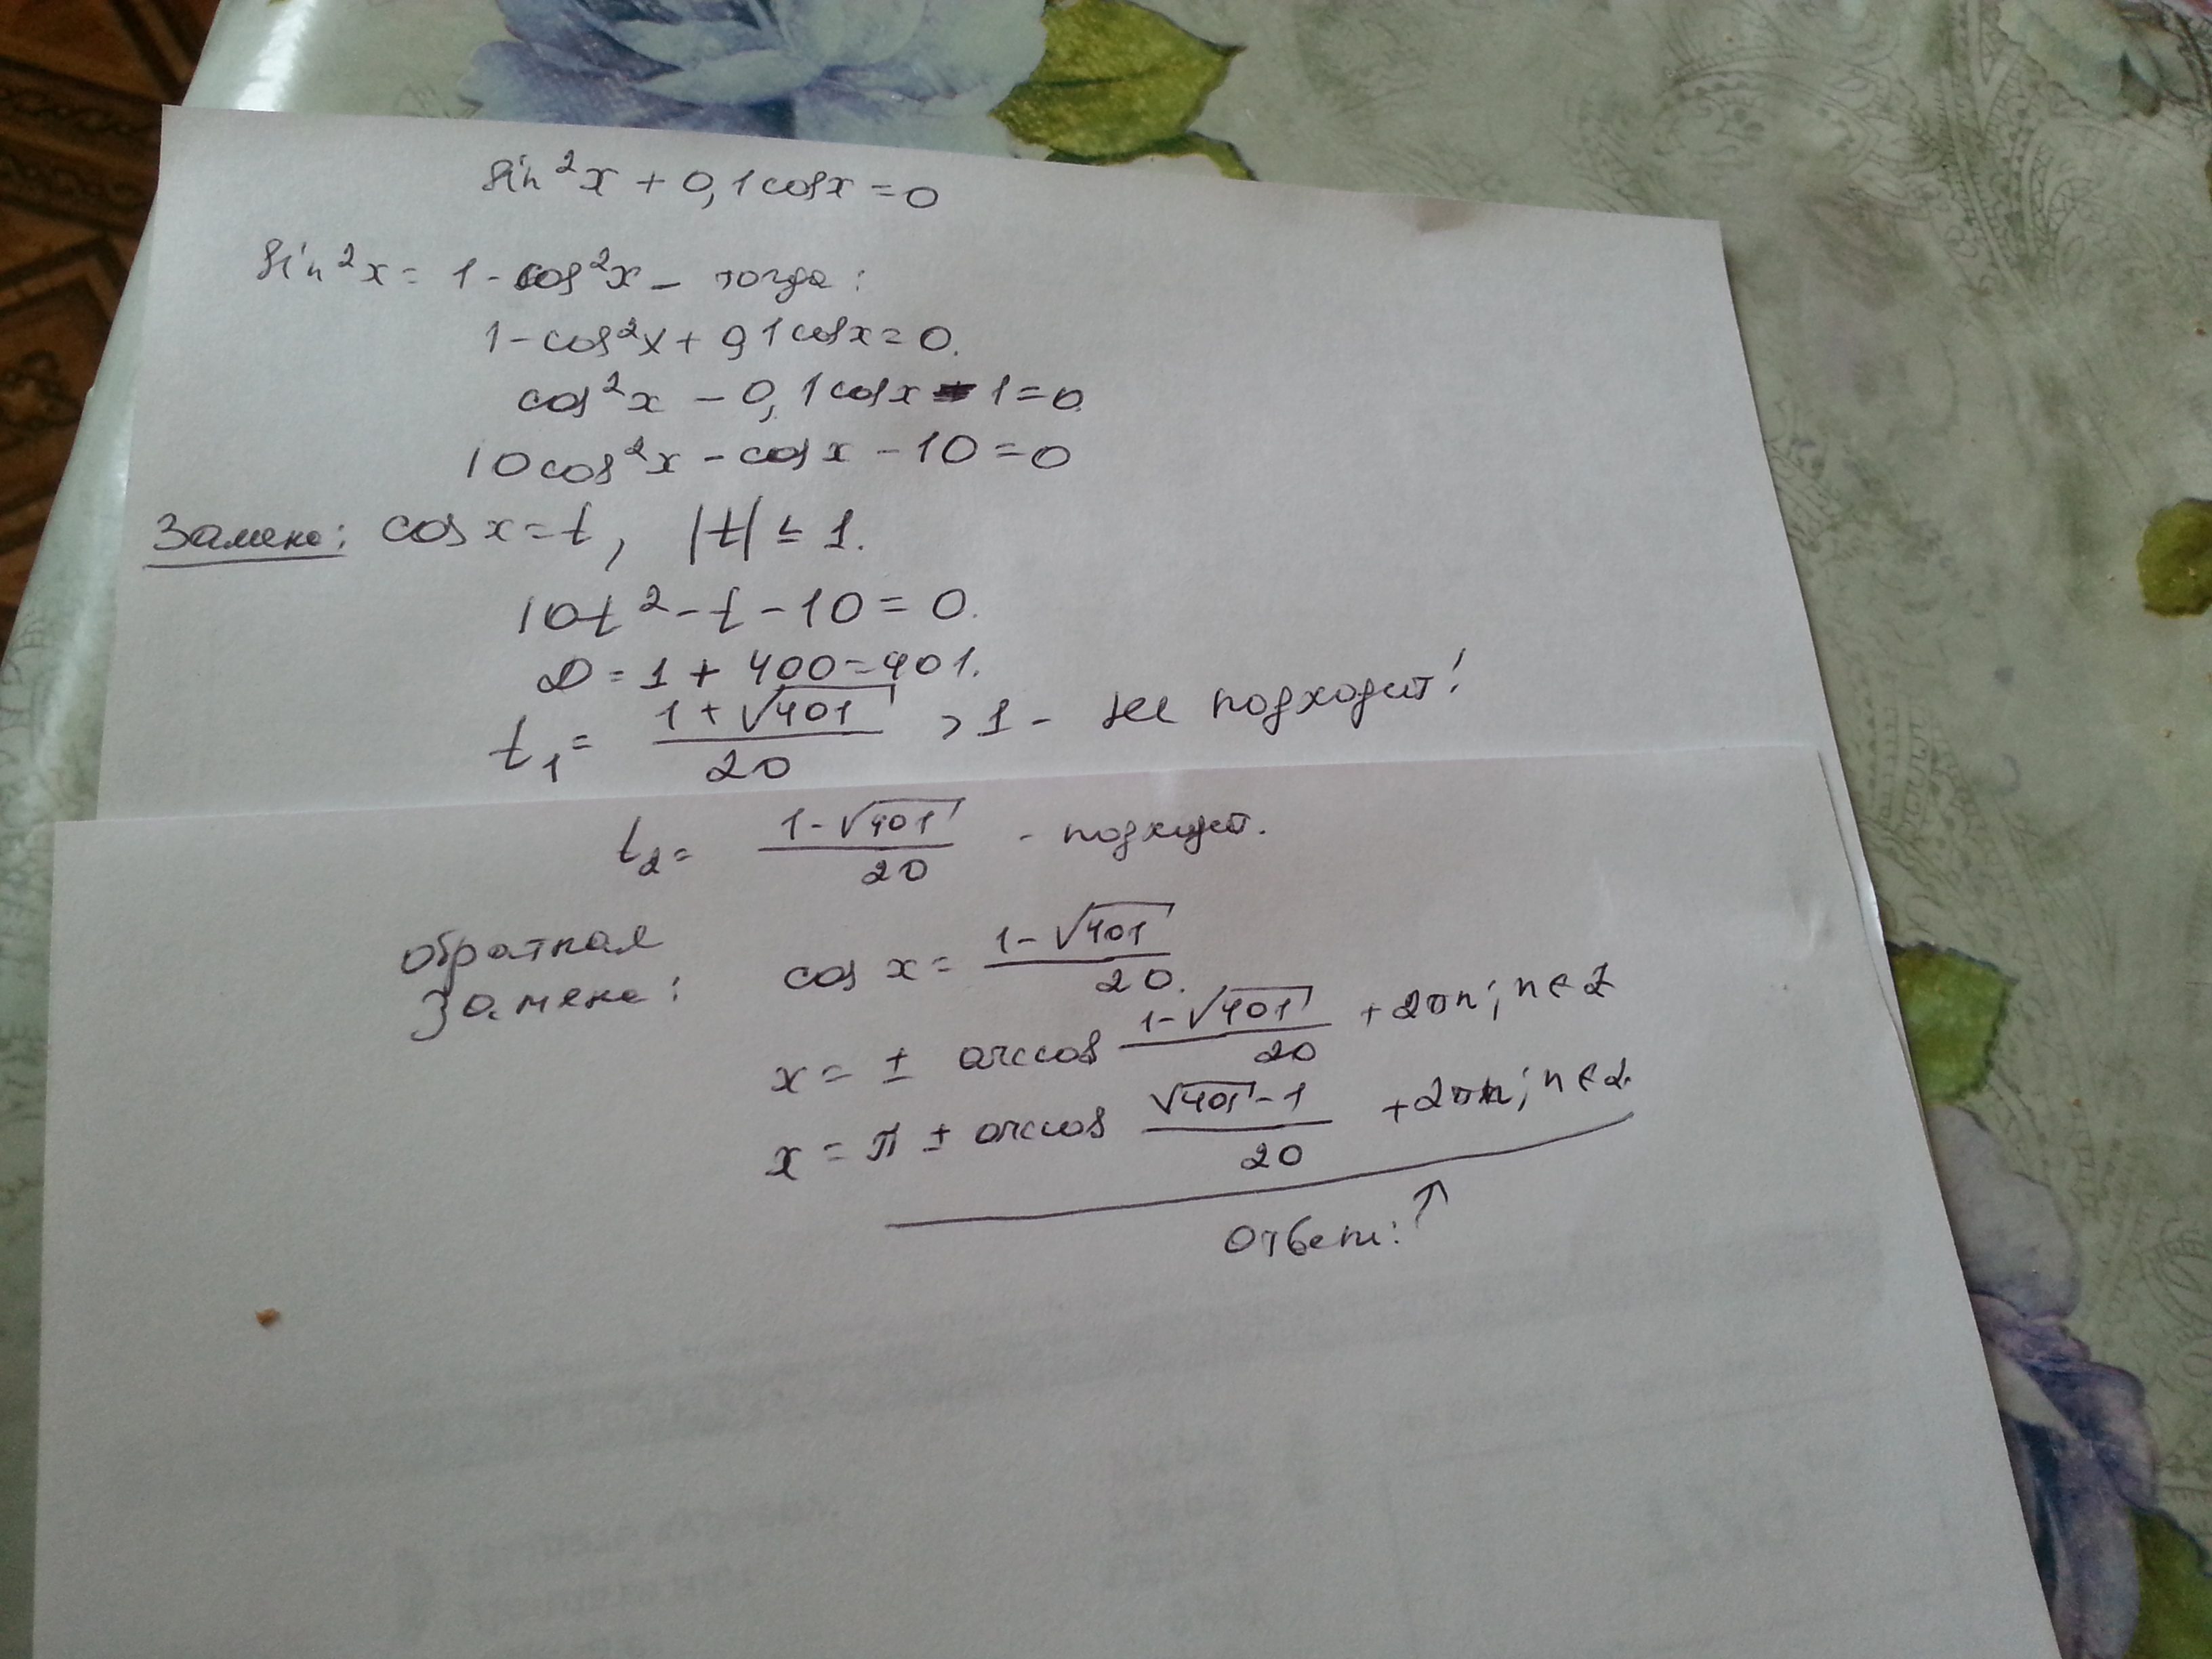 sin²x + 0,1cosx = 0
sin²x = 1 - cos²x - тогда:
1 - cos²x + 0,1cosx = 0.
cos²x - 0,1cosx - 1 = 0
10cos²x - cosx - 10 = 0
Замена: cosx = t, |t| ≤ 1.
10t² - t - 10 = 0.
D = 1 + 400 = 401.
t₁ = (1 + √401)/20 > 1 - не подходит!
t₂ = (1 - √401)/20 - подходит.
Обратная замена: cos x = (1 - √401)/20.
x = ± arccos (1 - √401)/20 + 2πn; n ∈ Z
x = π ± arccos (√401 - 1)/20 + 2πn; n ∈ Z.
Ответ: ↑